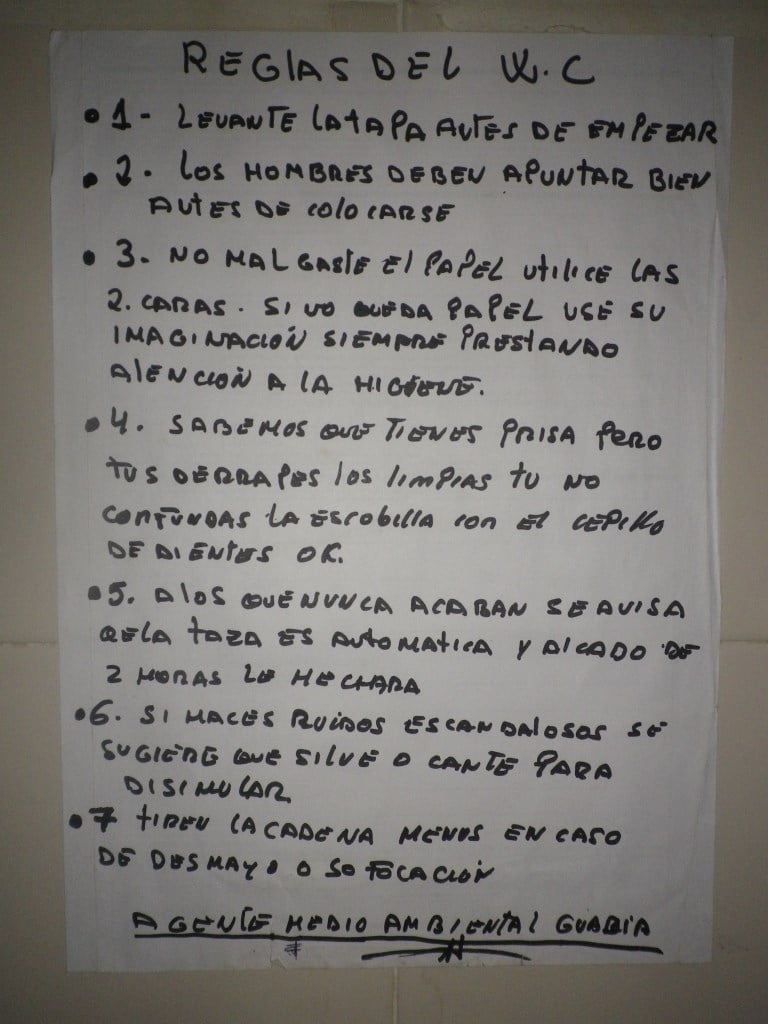 REGLAS DEL W.C
• 1- LEVANTE LA TAPA ANTES DE EMPEZAR
• 2. LOS HOMBRES DEBEN APUNTAR BIEN
ANTES DE COLOCARSE
• 3. NO MALGASTE El PAPEL UtiLICE LAS
2. CARAS. SI NO QUEDA PAPEL USE SU
IMAGINACIÓN SIEMPRE PRESTANDO
ATENCIÓN A LA HIGIENE.
• 4. SABEMOS QUE TIENES PRISA PERO
TUS DERRAPES LOS LIMPIAS TU NO
CONFUNDAS LA ESCOBILLA CON EL CEPILLO
DE DIENTES OK.
• 5. A LOS QUE NUNCA ACABAN SE AVISA
QE LA TAZA ES AUTOMATICA Y AL CABO DE
2 HORAS LE HECHARA
• 6. SI HACES RUIDOS ESCANDALOSOS SE
SUGIERE QUE SILVE O CANTE PARA
DISIMULAR
• 7 TIREN LA CADENA MENOS EN CASO
DE DESMAYO O SOFOCACIÓN
AGENTE MEDIO AMBIENTAL GUARIA